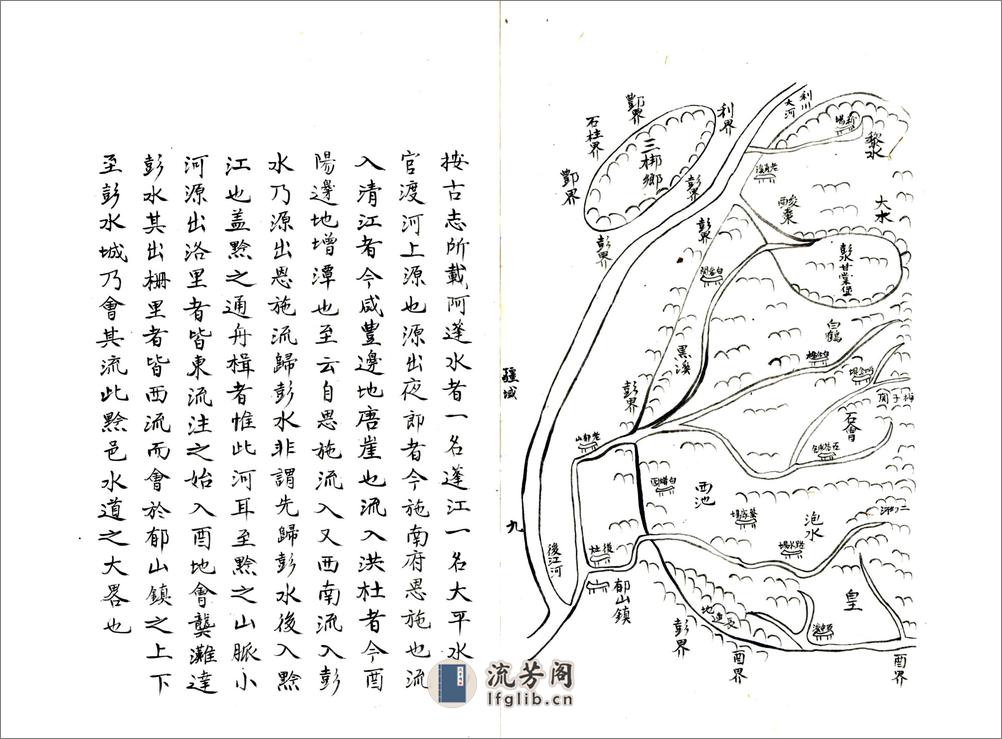 按古志所載阿蓬水者一名蓬江一名大平水
官渡河上源也源出夜郎者今施南府恩施也流
入清江者今咸豐邊地唐崖也流入洪杜者今酉
陽邊地增潭也至云自恩施流入又西南流入彭
水乃源出恩施流歸彭水非謂先歸彭水後入黔
江也盖黔之通舟楫者惟此河耳至黔之山脈小
河源出洛里者皆東流注之始入酉地會龔灘達
彭水其出柵里者皆西流而會於郁山鎮之上下
至彭水城乃會其流此黔邑水道之大畧也
疆域
九
利川
大河
利界
酆界
石柱界
酆界
三梆鄉
彭界
彭界
彭界
黎水
大水
彭水甘棠堡
白鶴
黑溪
彭界
石會
梅子関
西池
泡水
後江河
郁山鎮
彭界
酉界
皇
酉界
流芳阁
lfglib.cn